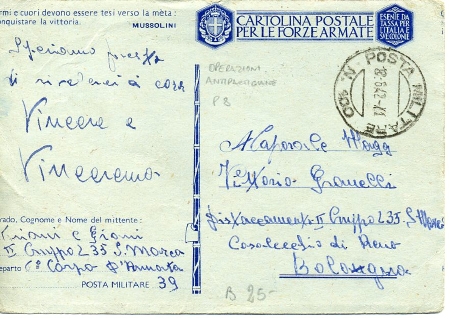 rmi e cuori devono essere tesi verso la mèta:
onquistare la vittoria. MUSSOLINI
CARTOLINA POSTALE
PER LE FORZE ARMATE
ESENTE DA
TASSA PER
L'ITALIA E
SVE COLONIE
Speriamo presto
di a casa
Vincere e
Vinceremo
OPERAZIONI
P 8
POSTA MILITARE
Vittorio Granelli
Distaccamento II Gruppo 235 S. Marco
Casalecchio di Reno
Bologna
rado, Cognome e Nome del mittente:
II Gruppo 235 S. Marco
eparto C° Corpo d'Armata
POSTA MILITARE 39
B 25-